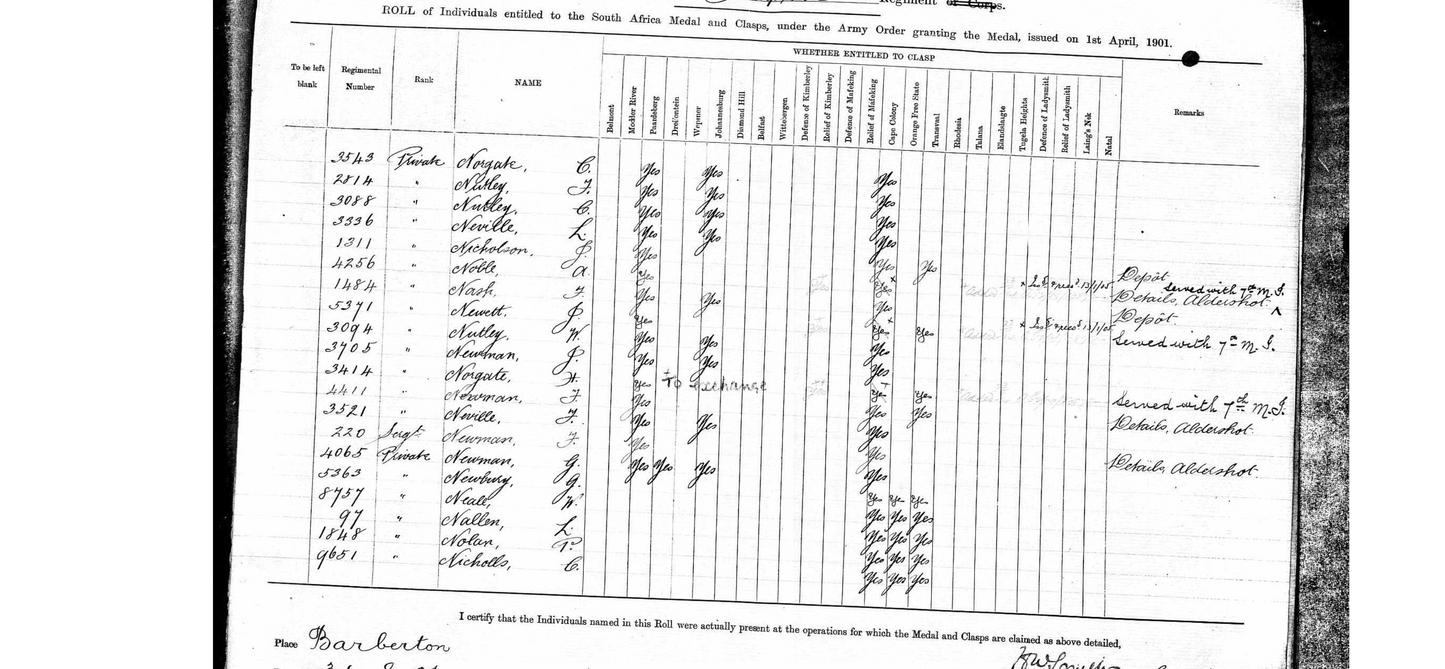 Regiment or Corps.
ROLL of Individuals entitled to the South Africa Medal and Clasps, under the Army Order granting the Medal, issued on 1st April, 1901.
To be left blank
Regimental Number
Rank
NAME
WHETHER ENTITLED TO CLASP
Belmont
Modder River
Paardeberg
Dreifontein
Wepener
Johannesburg
Diamond Hill
Belfast
Wittebergen
Defence of Kimberley
Relief of Kimberley
Defence of Mafeking
Relief of Mafeking
Cape Colony
Orange Free State
Transvaal
Rhodesia
Talana
Elandslaagte
Tugela Heights
Defence of Ladysmith
Relief of Ladysmith
Laing's Nek
Natal
Remarks
3543 Private Norgate, C. Yes Yes Yes
2814 " Nutley, F. Yes Yes Yes
3088 " Nutley, C. Yes Yes Yes
3336 " Neville, L. Yes Yes Yes
1311 " Nicholson, J. Yes Yes Yes Depôt
4256 " Noble, A. Yes Yes Served with 7th M.I. Details, Aldershot.
1484 " Nash, F. Yes Yes Yes Depôt.
5371 " Newett, J. Yes Yes Yes Served with 7th M.I.
3094 " Nutley, W. Yes Yes Yes
3705 " Newman, J. Yes Yes Yes
3414 " Norgate, H. Yes To exchange Yes Yes Served with 7th M.I.
4411 " Newman, F. Yes Yes Yes Details, Aldershot.
3521 " Neville, F. Yes Yes Yes
220 Sergt Newman, F. Yes Yes Details, Aldershot.
4065 Private Newman, G. Yes Yes Yes Yes
5363 " Newbury, G. Yes Yes Yes
8757 " Neall, W. Yes Yes Yes
97 " Nallen, L. Yes Yes Yes
1848 " Nolan, P. Yes Yes Yes
9651 " Nicholls, C. Yes Yes Yes
I certify that the Individuals named in this Roll were actually present at the operations for which the Medal and Clasps are claimed as above detailed,
Place Barberton